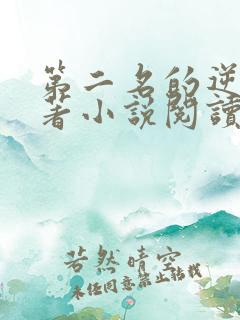 第二名的逆
著小說閱讀
若然晴空
未经同意禁止转载